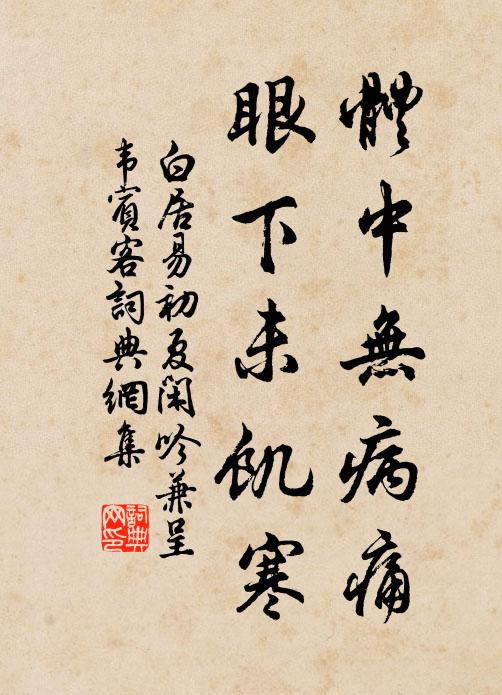 體中無病痛
眼下未飢寒
白居易初夏閑吟兼呈
韦賓客詞典網集
詞典网印